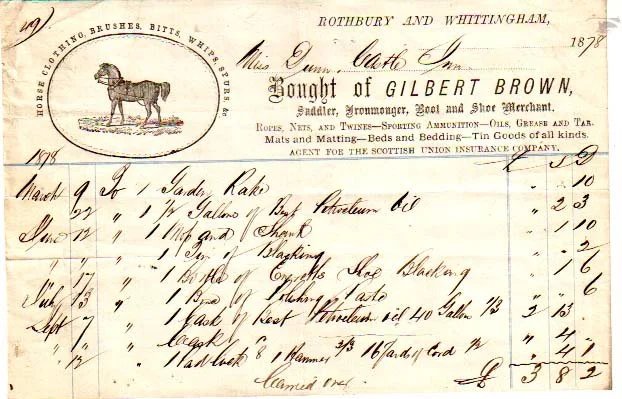 49)
ROTHBURY AND WHITTINGHAM,
HORSE CLOTHING, BRUSHES, BITTS, WHIPS, SPURS, &c
1878
Miss Dunn, Castle Inn
Bought of GILBERT BROWN,
Saddler, Ironmonger, Boot and Shoe Merchant.
ROPES, NETS, AND TWINES—SPORTING AMMUNITION—OILS, GREASE AND TAR.
Mats and Matting—Beds and Bedding—Tin Goods of all kinds.
AGENT FOR THE SCOTTISH UNION INSURANCE COMPANY.
1878 £ S D
March 9 To 1 Garden Rake " " 10
" 22 " 1 1/2 Gallons of Best Petroleum Oil " 2 3
June 12 " 1 Mop and Shank " 1 10
" " " 1 Tin of Blacking " " 2
" 17 " 1 Bottle of Everetts Blacking " 1 6
July 13 " 1 of Polishing Paste " " 6
Sept 7 " 1 Cask of Best Petroleum Oil 40 Gallon 1/3 2 13
" " " Cask " 4 "
" 12 " 1 Padlock 8 1 Hammer 2/3 16 Yards of Cord 1/2 " 4 1
Carried over £ 3 8 2